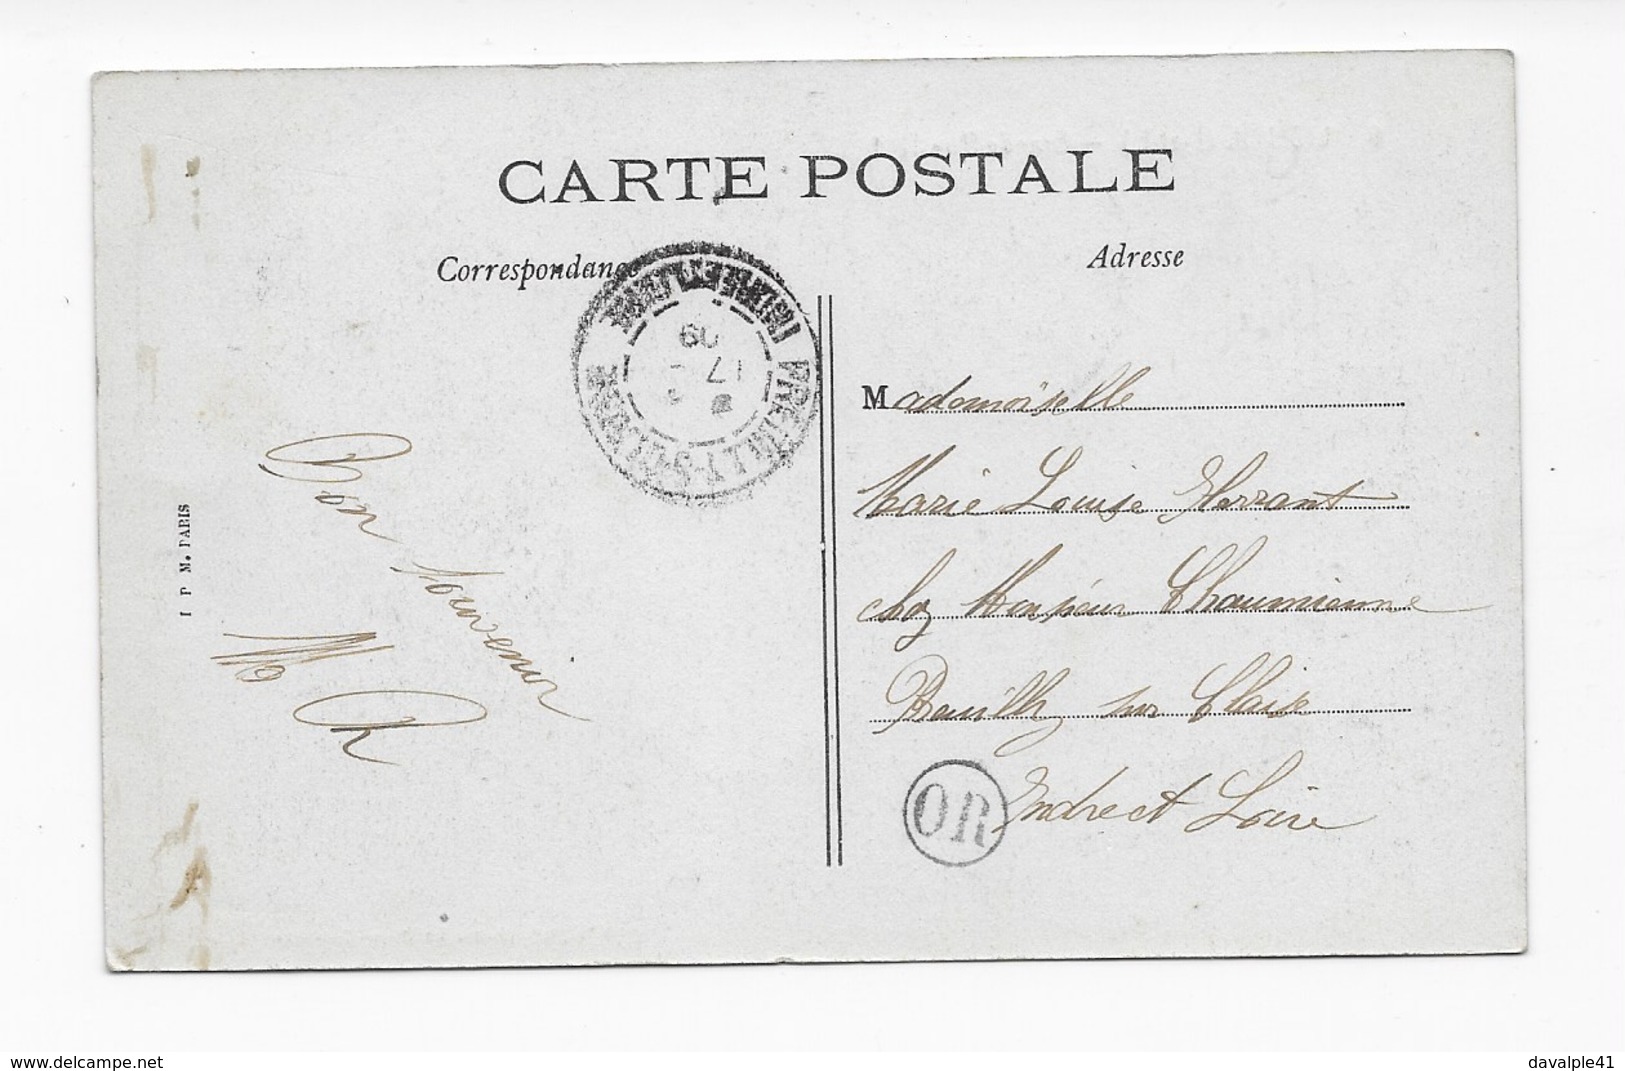 CARTE POSTALE
Correspondance
Adresse
INDRE-ET-LOIRE
17
09
PREUILLY-S-CLAISE
Mademoiselle
Marie Louise
chez Monsieur Chaumienne
Preuilly sur Claise
Indre et Loire
OR
Bon souvenir
I P M. PARIS
www.delcampe.net
davalple41